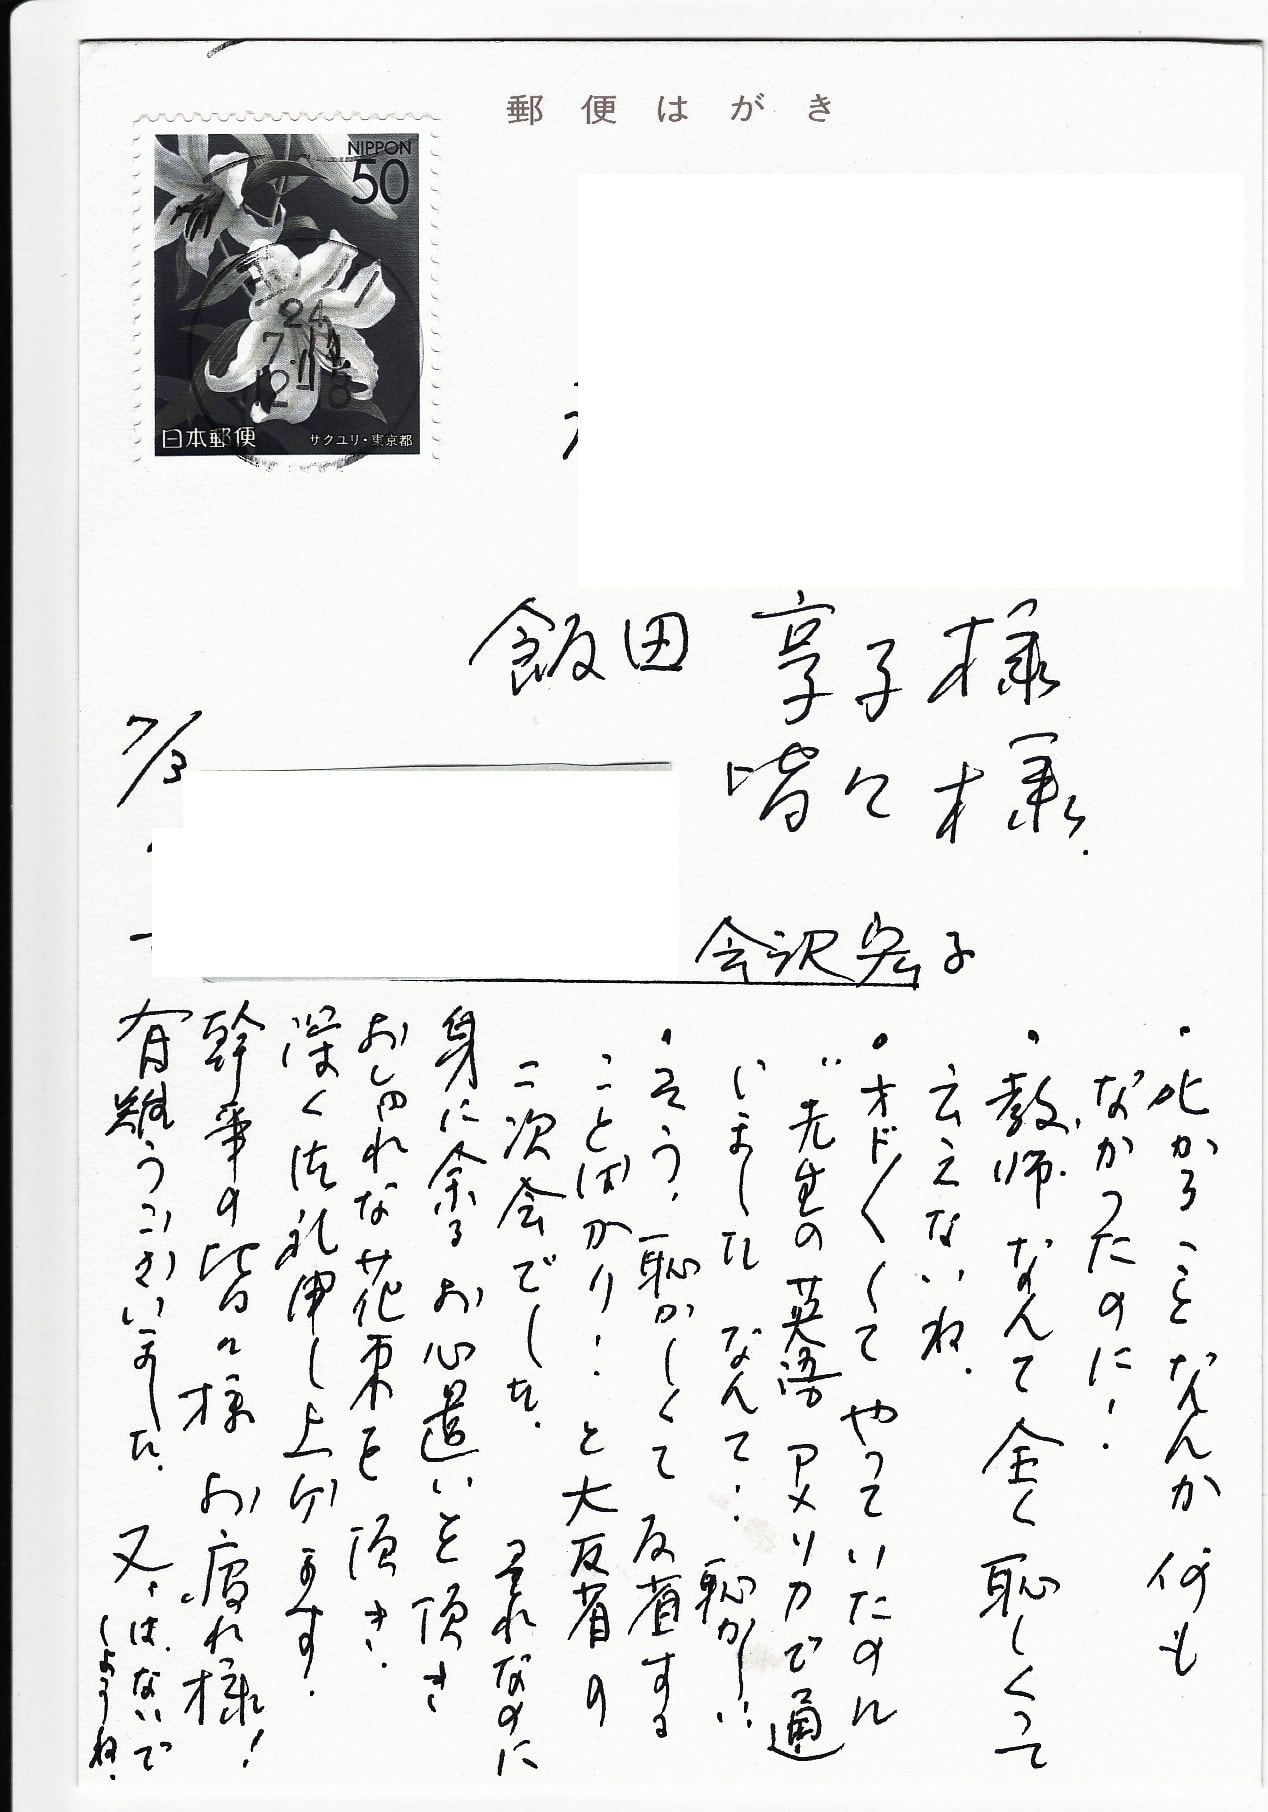 郵便はがき
NIPPON
50
24
7.11
12-18
日本郵便
サクユリ・東京都
飯田 享子様
皆々様.
7/3
会沢宏子
・叱かることなんか 何も
なかったのに!
・教師なんて全く恥しくって
云えないね.
・オド〳〵くてやっていたのに
"先生の英語アメリカで通
じました なんて! 恥かしい!!
・そう、恥かしくて 反省する
ことばかり! と大反省の
二次会でした. それなのに
身に余るお心遣いを頂き
おしゃれな花束を 頂き.
深く御礼申し上げます.
幹事の皆々様 お疲れ様!
有難うございました. 又、は、ないで
しょうね.